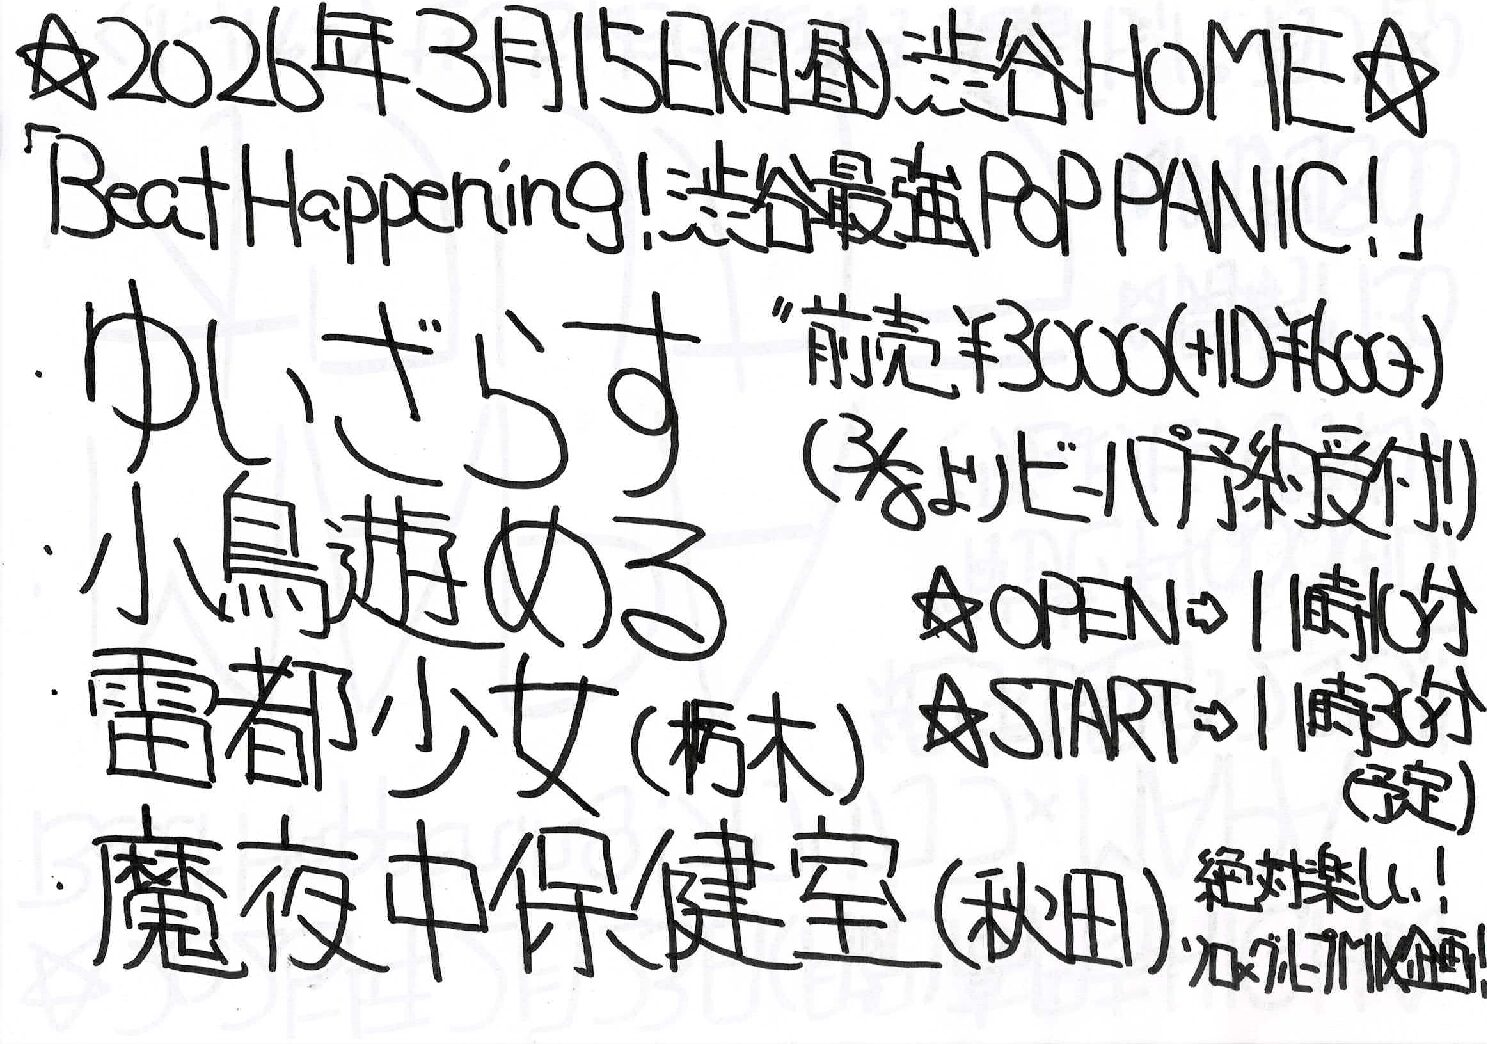 ☆2026年3月15日(日昼)渋谷HOME☆
「Beat Happening!渋谷最強POP PANIC!」
・ゆいざらす
・小鳥遊める
・雷都少女(栃木)
・魔夜中保健室(秋田)
"前売¥3000(+1D¥600)
(3/8よりビーハプ予約受付!)
☆OPEN⇨11時10分
☆START⇨11時30分
(予定)
絶対楽しい!
ソロ×グループMIX企画!